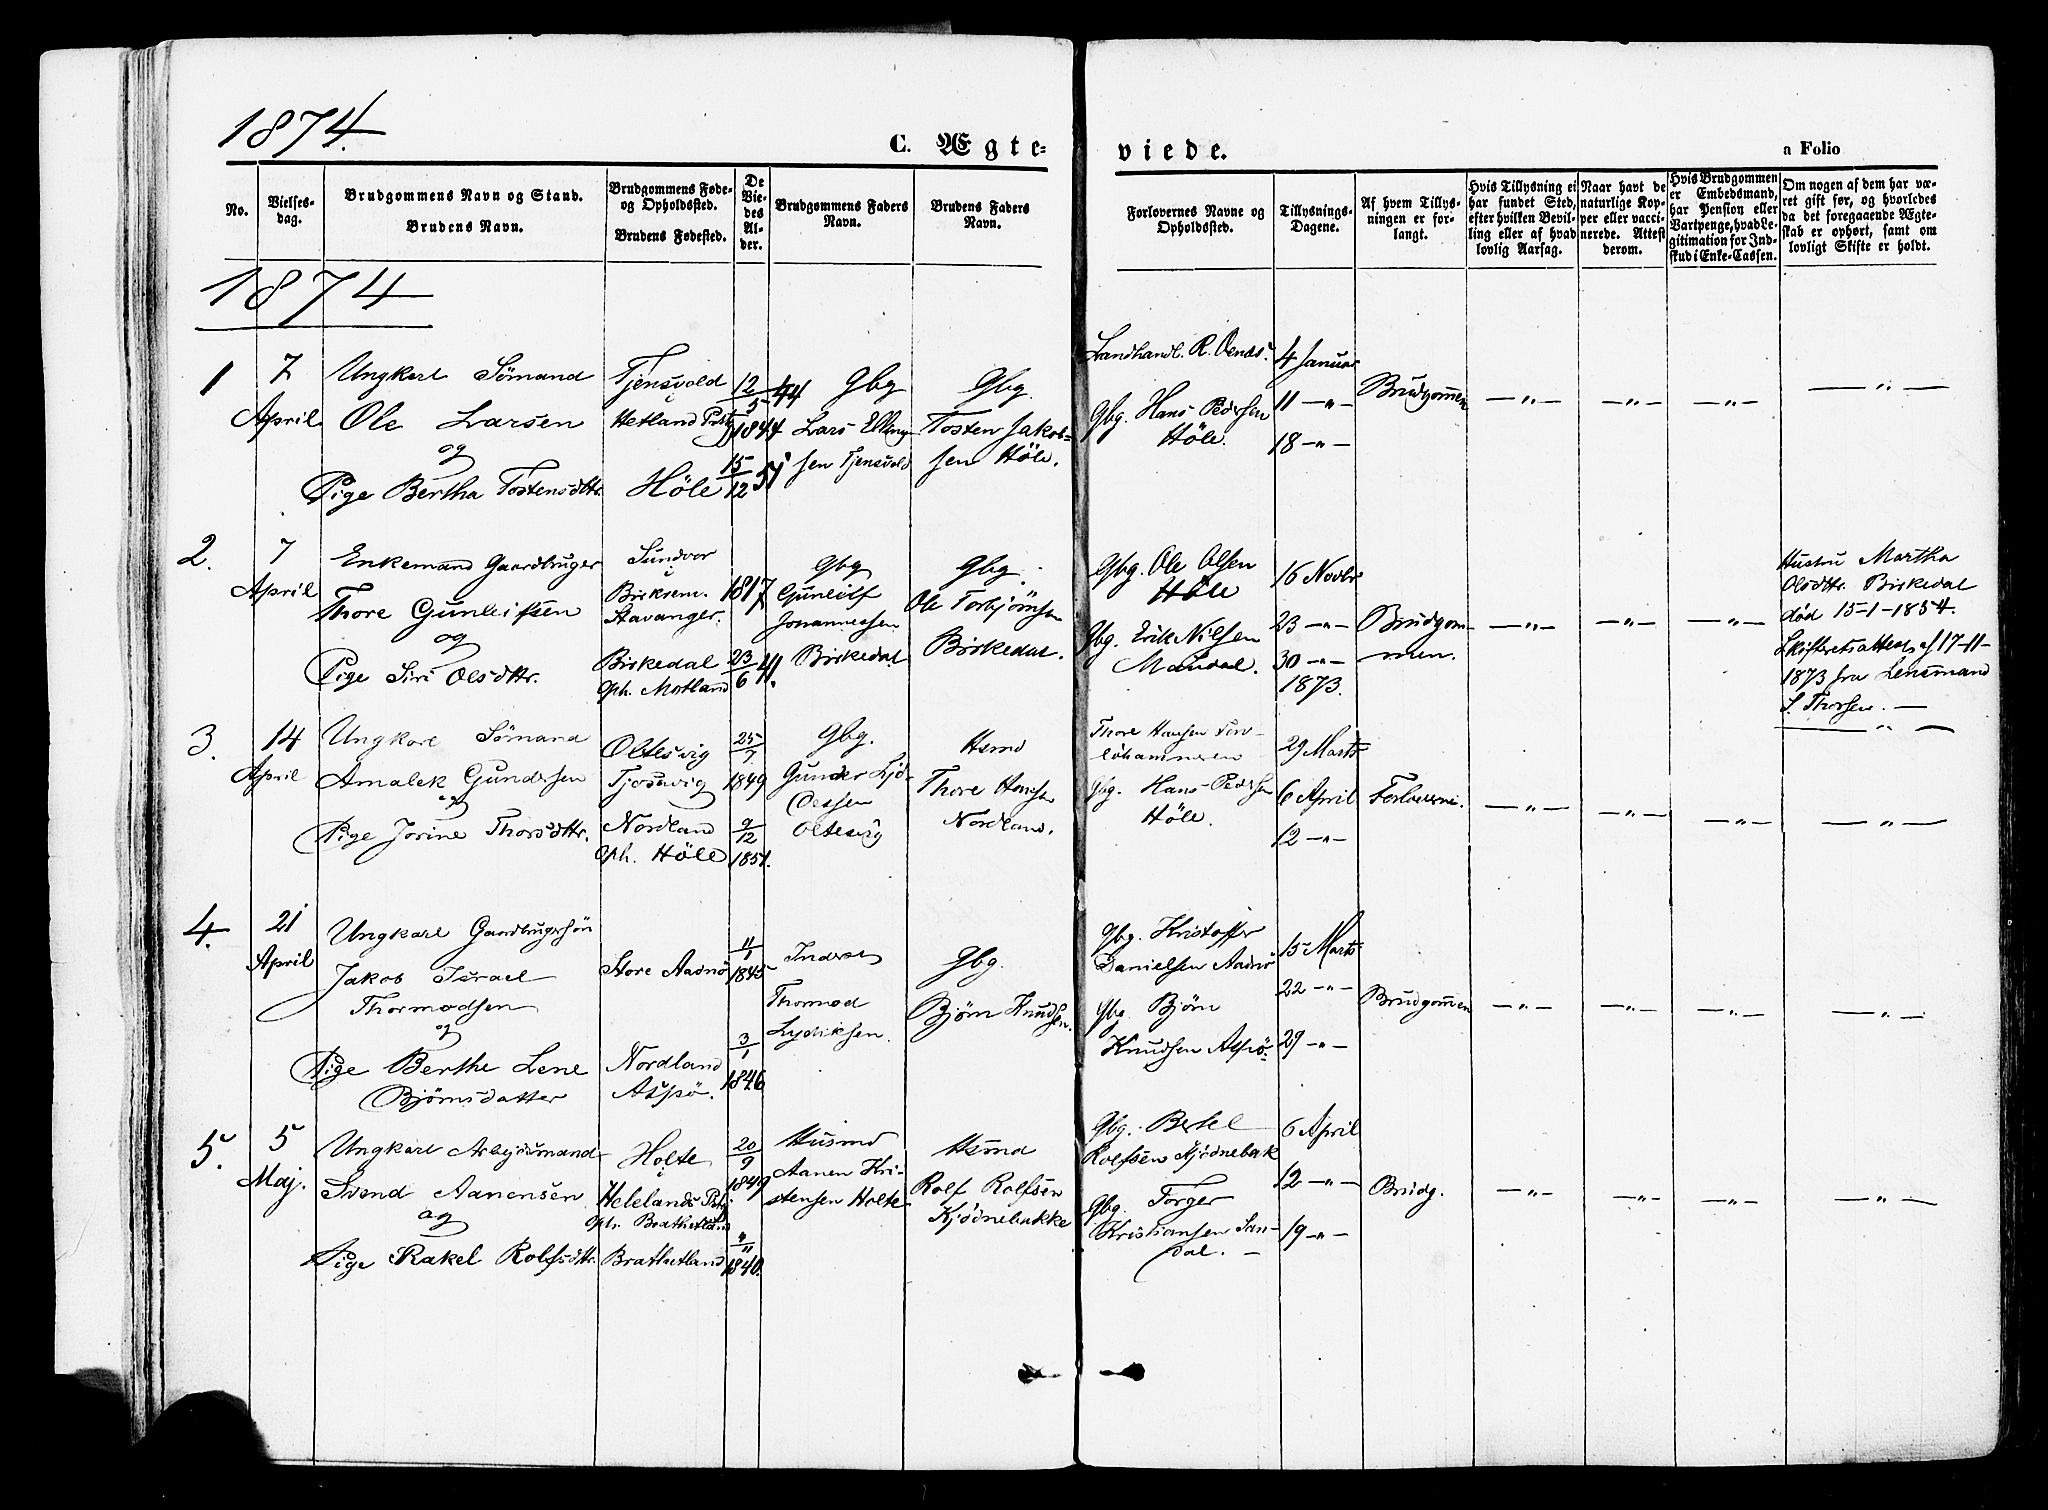 1874.
C. Ægte-
viede.
a Folio
No.
Vielses-
dag.
Brudgommens Navn og Stand.
Brudens Navn.
Brudgommens Føde-
og Opholdssted.
Brudens Fødested.
De
Vie-
des
Al-
der.
Brudgommens Faders
Navn.
Brudens Faders
Navn.
Forlovernes Navne og
Opholdssted.
Tillysnings-
Dagene.
Af hvem Tillys-
ningen er for-
langt.
Hvis Tillysning ei
har fundet Sted,
efter hvilken Bevil-
ling eller af hvad
lovlig Aarsag.
Naar havt de
naturlige Kop-
per eller vacci-
nerede. Attest
derom.
Hvis Brudgommen
er Embedsmand,
har Pension eller
Vartpenge, hvad Le-
gitimation for Ind-
skud i Enke-Cassen.
Om nogen af dem har væ-
ret gift før, og hvorledes
da det foregaaende Ægte-
skab er ophørt, samt om
lovligt Skifte er holdt.
1874
1
7
April
Ungkarl Sömand
Ole Larsen
og
Pige Bertha Tostensdttr.
Tjensvold
i
Hetland Pstgj
Höle
12/5 44
1844
15/12 51
Gbg
Lars Elling-
sen Tjensvold
Gbg.
Tosten Jakob-
sen Höle.
Landhandl. R. Oends.
Gbg. Hans Pedersen
Höle.
4 Januar
11 — " —
18 — " —
Brudgommen
— " —
— " —
— " —
— " —
2.
7
April
Enkemand Gaardbruger
Thore Gunleifsen
og
Pige Siri Olsdttr.
Sundvor
i
Birksem.
Stavanger.
Birkedal
oph. Motland
1817
23/6 41.
Gbg
Gunleif
Johannessen
Birkedal
Gbg.
Ole Torbjörnsen
Birkedal.
Gbg. Ole Olsen
Höle
Gbg. Erik Nilsen
Maudal.
16 Novbr
23 — " —
30 — " —
1873.
Brudgom-
men.
— " —
— " —
— " —
Hustru Martha
Olsdttr. Birkedal
död 15-1-1854.
Skifteretsattest af 17-11-
1873 fra Lensmand
S. Thorsen. —
— " —
3.
14
April
Ungkarl Sömand
Amalek Gundersen
og
Pige Jorine Thorsdttr.
Oltesvig
Tjossvig
Nordland
oph. Höle
25/7
1849
9/12
1851.
Gbg.
Gunder
Oltesvig
Hsmd
Thore Hansen
Nordland.
Thore Hansen
Gbg. Hans Pedersen
Höle.
29 Marts
6 April
12 — " —
Forloverne.
— " —
— " —
— " —
— " —
4.
21
April
Ungkarl Gaardbrugersön
Jakob Israel
Thormodsen
og
Pige Berthe Lene
Björnsdatter
Store Aadnö
Nordland
Aspö.
11/1
1845
3/1
1846
Inderst
Thormod
Lydiksen.
Gbg.
Björn Knudsen.
Gbg. Kristoffer
Danielsen Aadnö
Gbg. Björn
Knudsen Aspö.
15 Marts
22 — " —
29 — " —
Brudgommen
— " —
— " —
— " —
— " —
5.
5
Maj.
Ungkarl Arbejdsmand
Svend Aanensen
og
Pige Rakel Rolfsdttr.
Holte
i
Helelands Pstgj
oph. Brathetland
Brathetland
20/9
1849
4/11
1840.
Husmd
Aanen Kri-
stensen Holte
Hsmd
Rolf Rolfsen
Kjödnebakke
Gbg. Bertel
Rolfsen Kjödnebak
Gbg. Torger
Kristiansen San-
dal. —
6 April
12 — " —
19 — " —
Brudg.
— " —
— " —
— " —
— " —